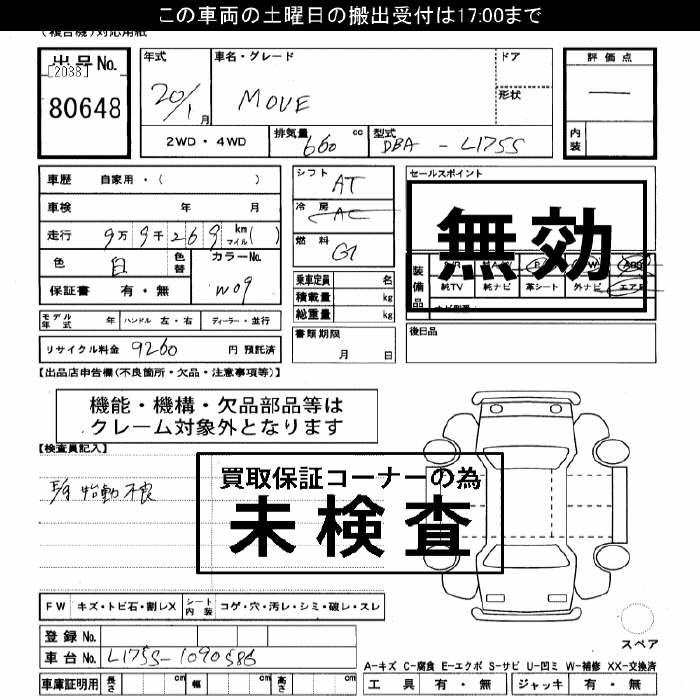 この車両の土曜日の搬出受付は17:00まで
(複合機)対応用紙
出品No. [2038] 80648
年式 20/1月
車名・グレード MOVE
ドア
形状
評価点 —
内装
2WD・4WD
排気量 660 cc
型式 DBA - L175S
車歴 自家用・( )
車検 年 月
走行 9万9千269 km マイル( )
色 白 色替
カラーNo. W09
保証書 有・無
シフト AT
冷房 AC
燃料
乗車定員 名
積載量 kg
総重量 kg
セールスポイント
無効
装備品
純TV 純ナビ 革シート 外ナビ エアB
モデル年式 年 ハンドル 左・右 ディーラー・並行
書類期限 月 日
後日品
リサイクル料金 9260 円 預託済
【出品店申告欄(不良箇所・欠品・注意事項等)】
機能・機構・欠品部品等は
クレーム対象外となります
【検査員記入】
買取保証コーナーの為
未検査
始動不良
FW キズ・トビ石・割レX シート内装 コゲ・穴・汚レ・シミ・破レ・スレ
登録No.
車台No. L175S-1090586
スペア
車庫証明用 長さ cm 幅 cm 高さ cm
A-キズ C-腐食 E-エクボ S-サビ U-凹ミ W-補修 XX-交換済
工具 有・無 ジャッキ 有・無